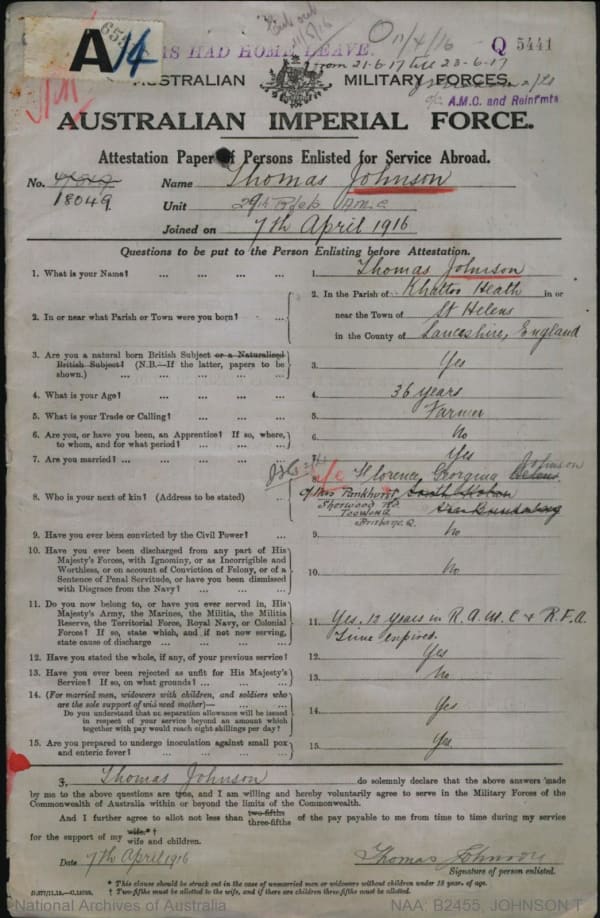 A 14
HAS HAD HOME LEAVE. 11/4/16 Q 5441
from 21-6-17 till 23-6-17
AUSTRALIAN MILITARY FORCES.
A.M.C. and Reinf'mts
AUSTRALIAN IMPERIAL FORCE.
Attestation Paper of Persons Enlisted for Service Abroad.
No. 18049 Name Thomas Johnson
Unit A.M.C
Joined on 7th April 1916
Questions to be put to the Person Enlisting before Attestation.
1. What is your Name? ... ... ... ... 1. Thomas Johnson
2. In or near what Parish or Town were you born? ... 2. In the Parish of Heath in or
near the Town of St Helens
in the County of Lancashire, England
3. Are you a natural born British Subject or a Naturalised
British Subject? (N.B.—If the latter, papers to be
shown.) ... ... ... ... ... 3. Yes
4. What is your Age? ... ... ... ... 4. 36 years
5. What is your Trade or Calling? ... ... ... 5. Farmer
6. Are you, or have you been, an Apprentice? If so, where,
to whom, and for what period? ... ... ... 6. No
7. Are you married? ... ... ... ... 7. Yes
8. Who is your next of kin? (Address to be stated) ... 8. Florence Georgina Johnson
c/o Mrs Pankhurst,
Sherwood Rd
Toowong
Brisbane Q.
9. Have you ever been convicted by the Civil Power? ... 9. No
10. Have you ever been discharged from any part of His
Majesty's Forces, with Ignominy, or as Incorrigible and
Worthless, or on account of Conviction of Felony, or of a
Sentence of Penal Servitude, or have you been dismissed
with Disgrace from the Navy? ... ... ... 10. No
11. Do you now belong to, or have you ever served in, His
Majesty's Army, the Marines, the Militia, the Militia
Reserve, the Territorial Force, Royal Navy, or Colonial
Forces? If so, state which, and if not now serving,
state cause of discharge ... ... ... 11. Yes, 12 years in R.A.M.C & R.F.A.
Time expired.
12. Have you stated the whole, if any, of your previous service? 12. Yes
13. Have you ever been rejected as unfit for His Majesty's
Service? If so, on what grounds? ... ... ... 13. No
14. (For married men, widowers with children, and soldiers who
are the sole support of widowed mother)—
Do you understand that no separation allowance will be issued
in respect of your service beyond an amount which
together with pay would reach eight shillings per day? 14. Yes
15. Are you prepared to undergo inoculation against small pox
and enteric fever? ... ... ... ... 15. Yes
I, Thomas Johnson do solemnly declare that the above answers made
by me to the above questions are true, and I am willing and hereby voluntarily agree to serve in the Military Forces of the
Commonwealth of Australia within or beyond the limits of the Commonwealth.
And I further agree to allot not less than two-fifths three-fifths of the pay payable to me from time to time during my service
for the support of my wife.*† wife and children.
Date 7th April 1916 Thomas Johnson
Signature of person enlisted.
* This clause should be struck out in the case of unmarried men or widowers without children under 18 year. of age.
† Two-fifths must be allotted to the wife, and if there are children three-fifths must be allotted.
©National Archives of Australia NAA: B2455, JOHNSON T